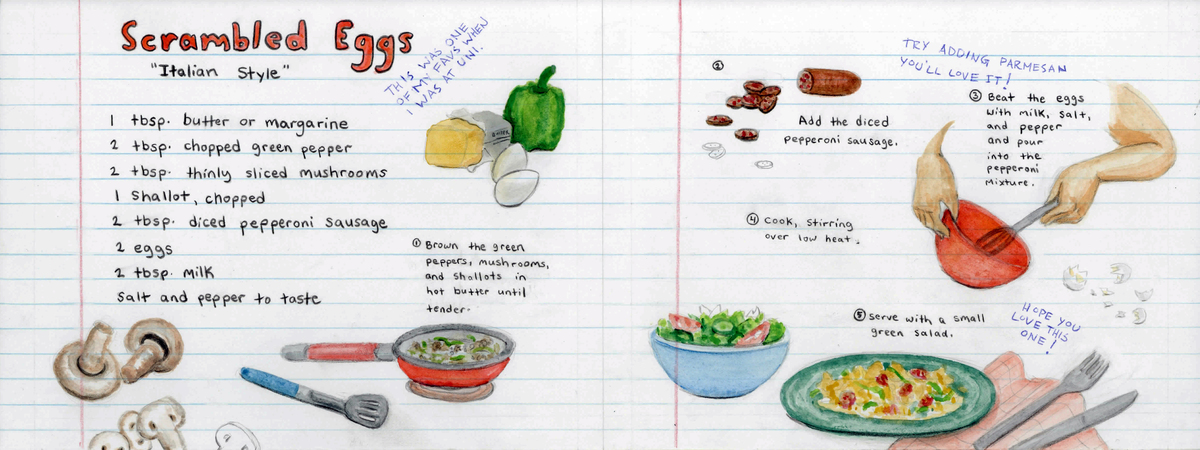 Scrambled Eggs
"Italian Style"
THIS WAS ONE
OF MY FAVS WHEN
I WAS AT UNI.
1 tbsp. butter or margarine
2 tbsp. chopped green pepper
2 tbsp. thinly sliced mushrooms
1 Shallot, chopped
2 tbsp. diced pepperoni sausage
2 eggs
2 tbsp. milk
Salt and pepper to taste
① Brown the green
peppers, mushrooms,
and shallots in
hot butter until
tender.
②
Add the diced
pepperoni sausage.
TRY ADDING PARMESAN
YOU'LL LOVE IT!
③ Beat the eggs
with milk, salt,
and pepper
and pour
into the
pepperoni
mixture.
④ Cook, stirring
over low heat.
⑤ serve with a small
green salad.
HOPE YOU
LOVE THIS
ONE!